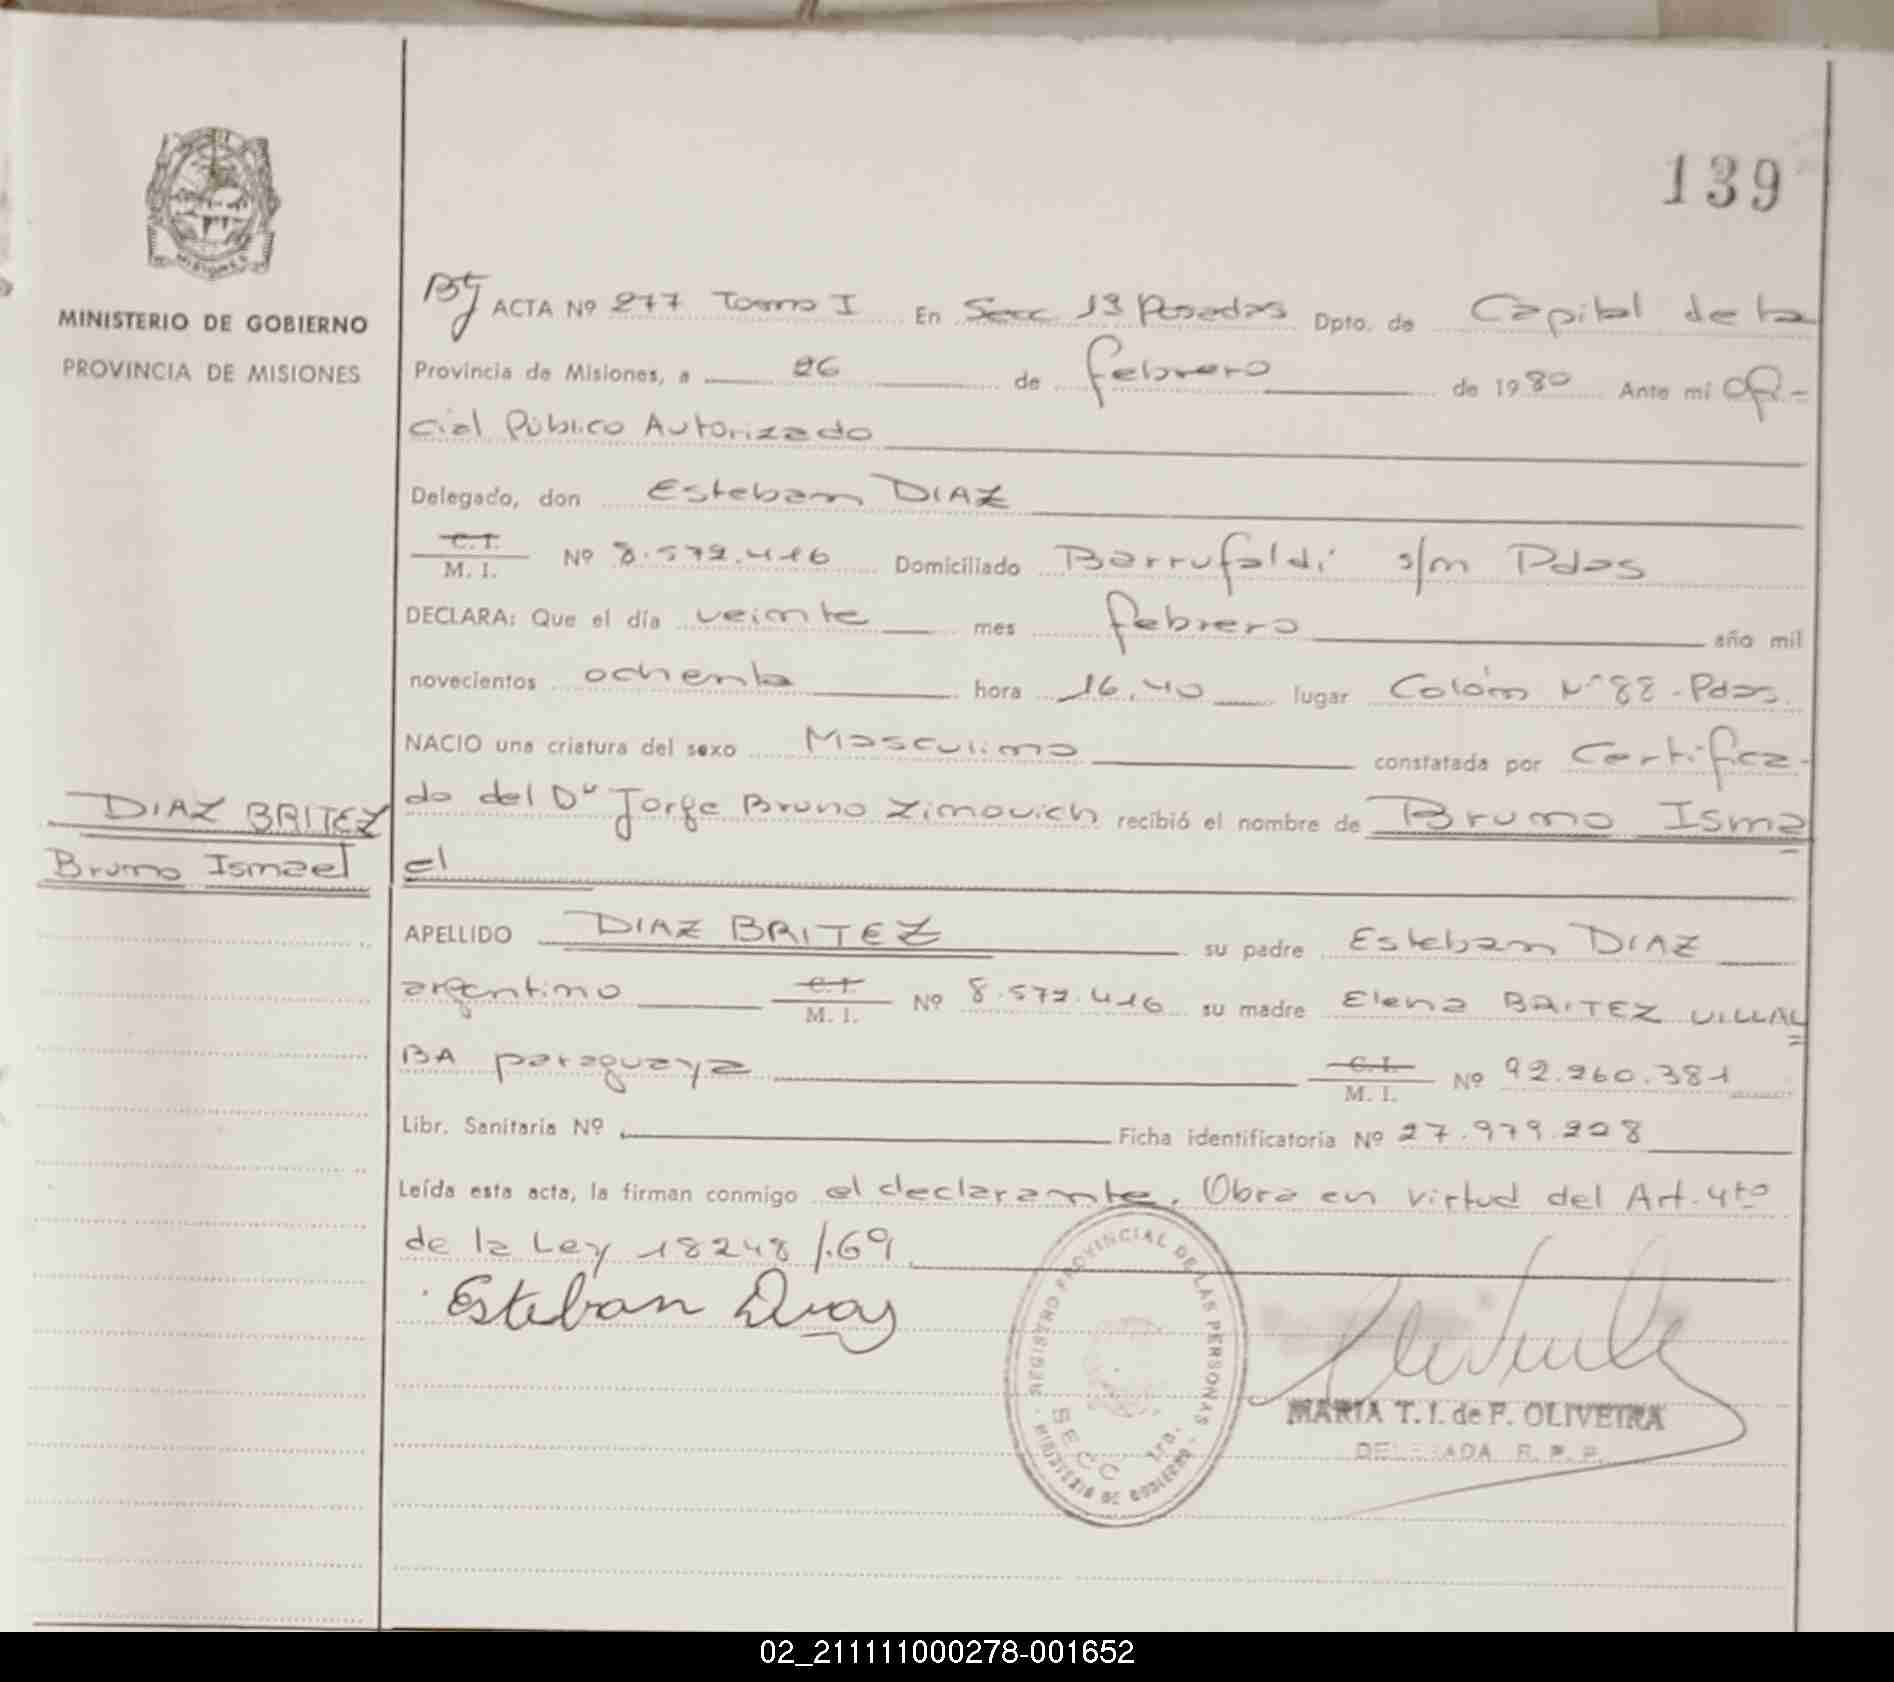 139
MISIONES
MINISTERIO DE GOBIERNO
PROVINCIA DE MISIONES
ACTA Nº 277 Tomo I En Secc 1ª Posadas Dpto. de Capital de la
Provincia de Misiones, a 26 de febrero de 1980 Ante mi Ofi=
cial Público Autorizado
Delegado, don Esteban DIAZ
C.I.
M. I. Nº 8.572.416 Domiciliado Barrufaldi s/n Pdas
DECLARA: Que el día veinte mes febrero año mil
novecientos ochenta hora 16.40 lugar Colón Nº 88 - Pdas.
NACIO una criatura del sexo Masculino constatada por Certifica-
do del Dr Jorge Bruno Zimovich recibió el nombre de Bruno Isma
el
DIAZ BRITEZ
Bruno Ismael
APELLIDO DIAZ BRITEZ su padre Esteban DIAZ
argentino C.I. M. I. Nº 8.572.416 su madre Elena BRITEZ VILLAL
BA paraguaya C.I. M. I. Nº 92.260.381
Libr. Sanitaria Nº Ficha identificatoria Nº 27.979.228
Leída esta acta, la firman conmigo el declarante. Obra en virtud del Art. 4to
de la Ley 18248/.69
Esteban Diaz
REGISTRO PROVINCIAL DE LAS PERSONAS
SECC 1ra.
MINISTERIO DE GOBIERNO
MARIA T. I. de F. OLIVEIRA
DELEGADA R. P. P.
02_211111000278-001652